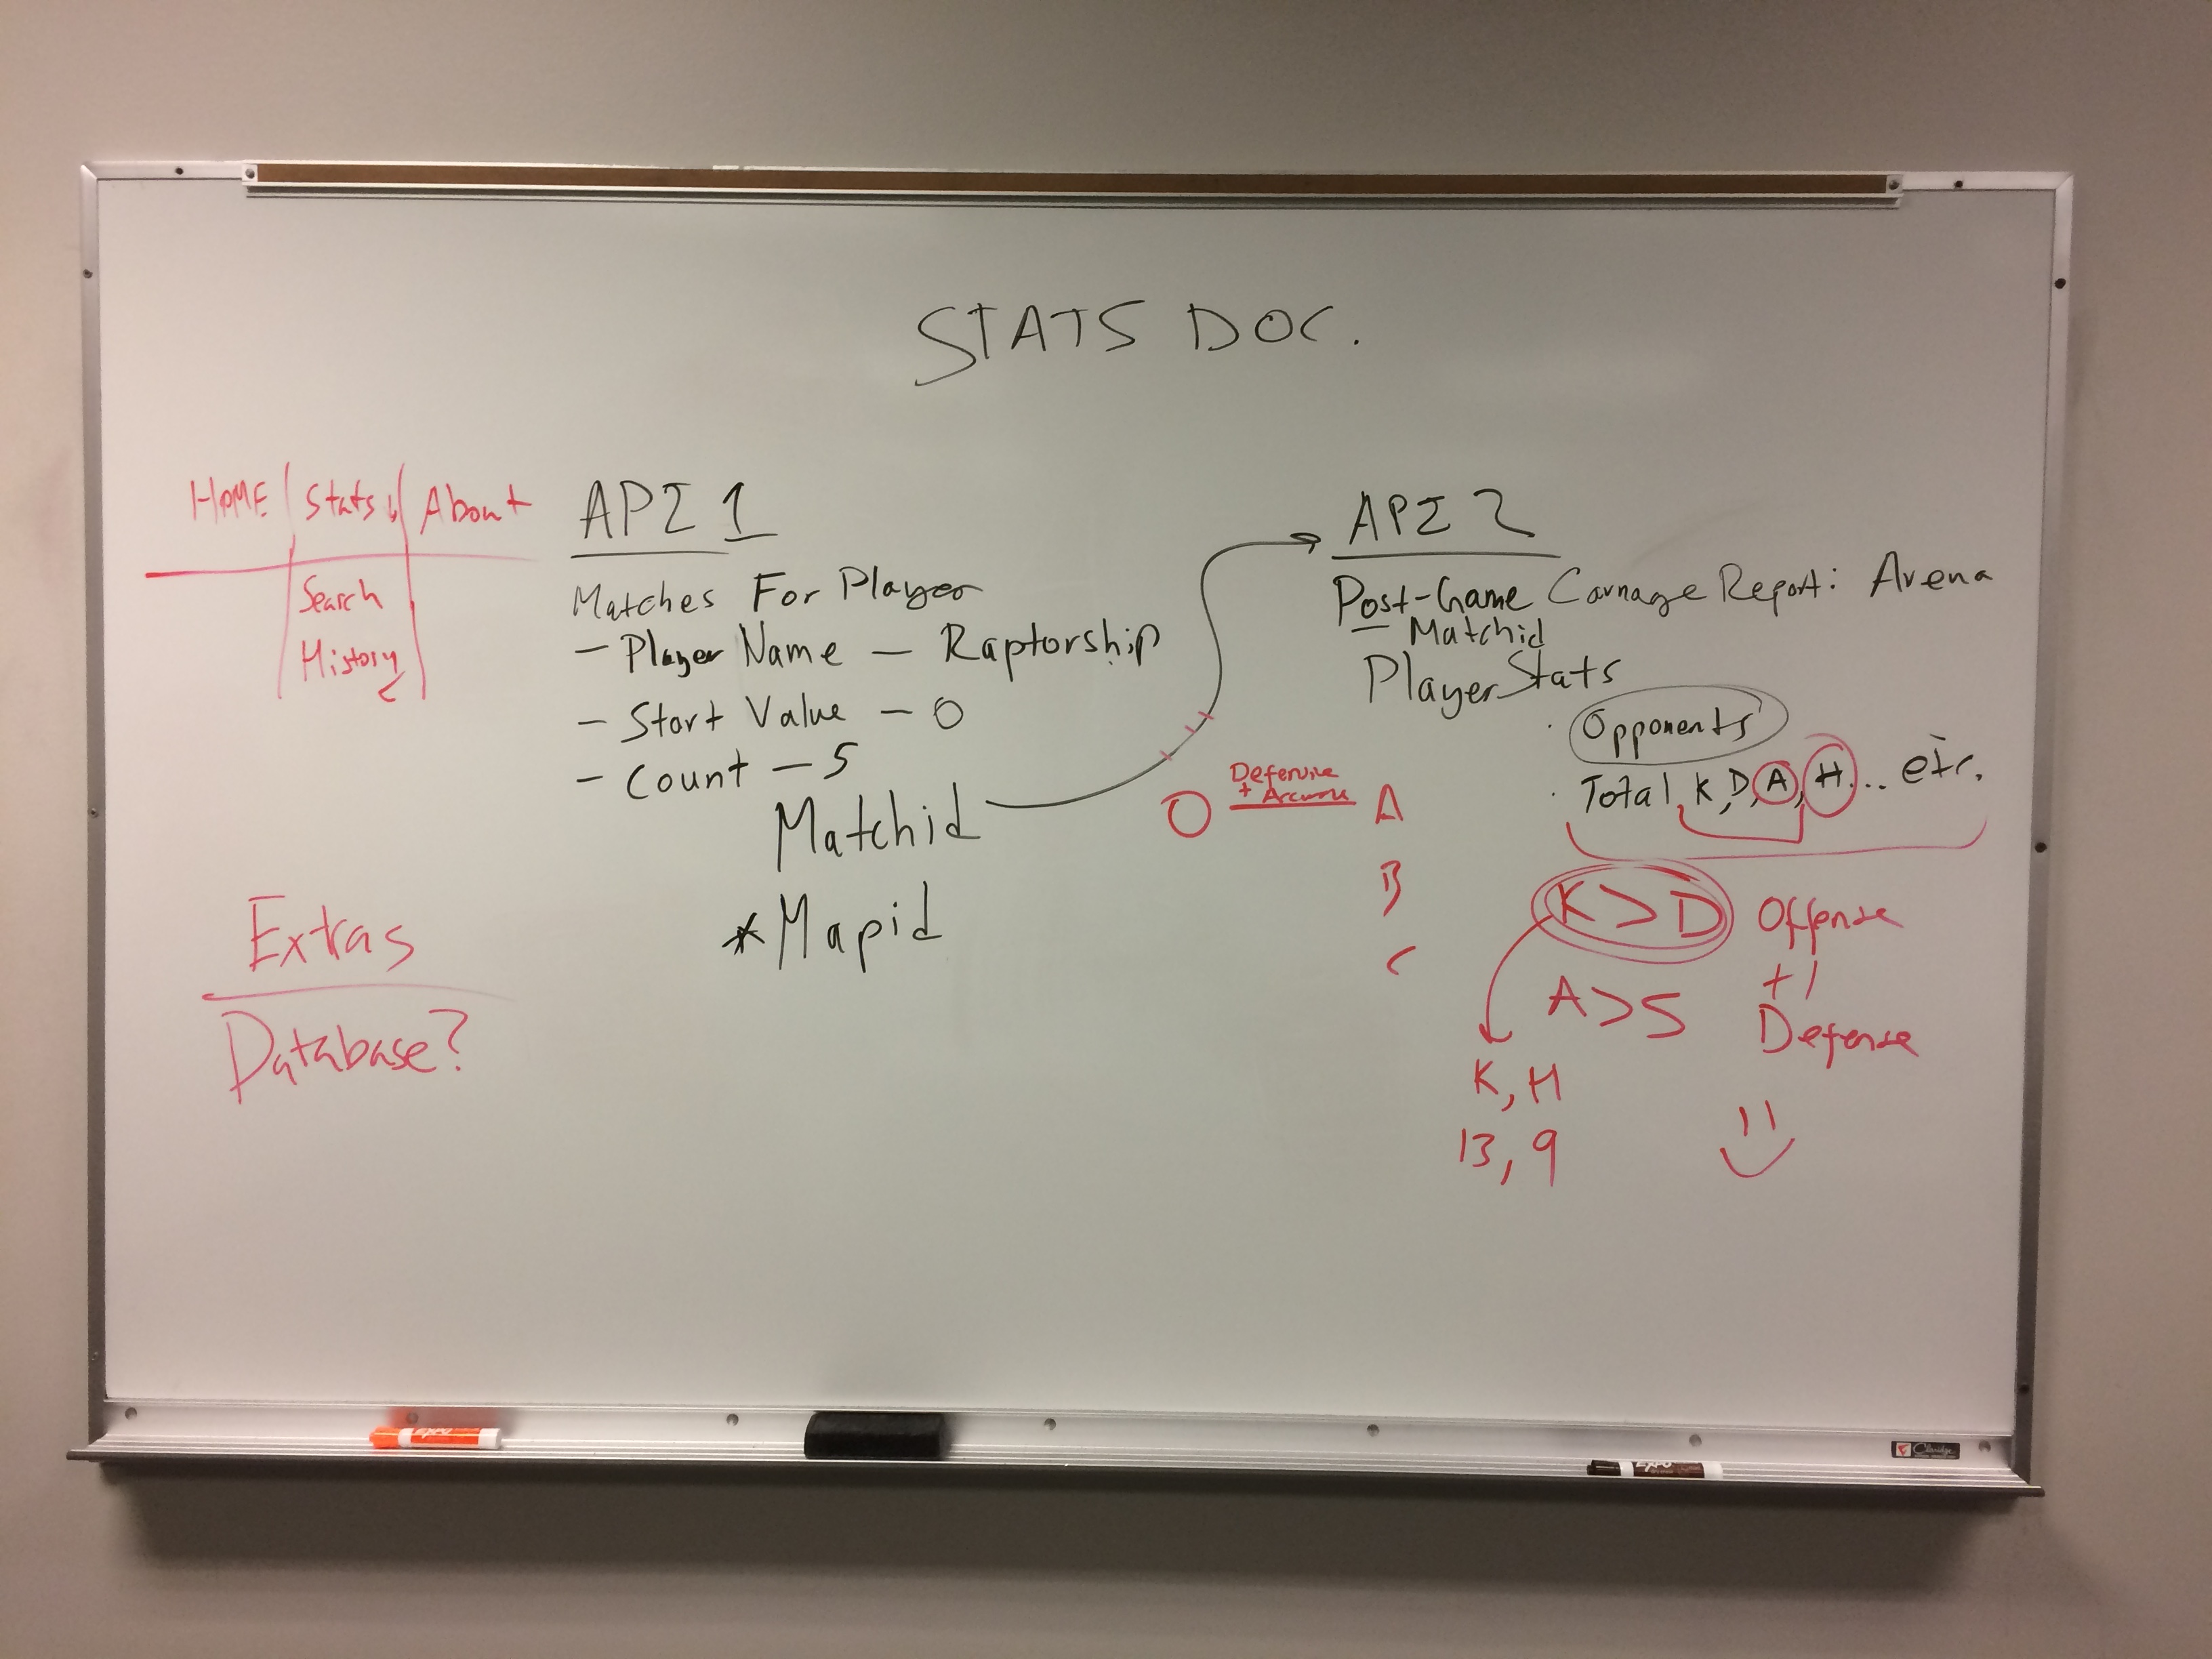 STATS DOC.
HOME | Stats | About
Search
History
Extras
Database?
API 1
Matches For Player
- Player Name - Raptorship
- Start Value - 0
- Count - 5
Matchid
*Mapid
API 2
Post-Game Carnage Report: Arena
- Matchid
Player Stats
· Opponents
· Total K, D, A, H... etc.
O
Defensive
+
A
B
C
K > D Offense
+1
A > 5 Defense
K, H
13, 9
EXPO
EXPO
Claridge